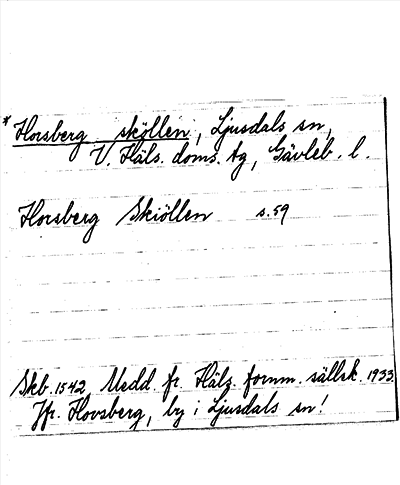 * Horsberg sköllen, Ljusdals sn,
V. Häls. doms. tg, Gävleb. l.
Horsberg Skiöllen s. 59
Skb. 1542 Medd. fr. Hälz. fornm. sällsk. 1933.
Jfr. Hovsberg, by i Ljusdals sn!